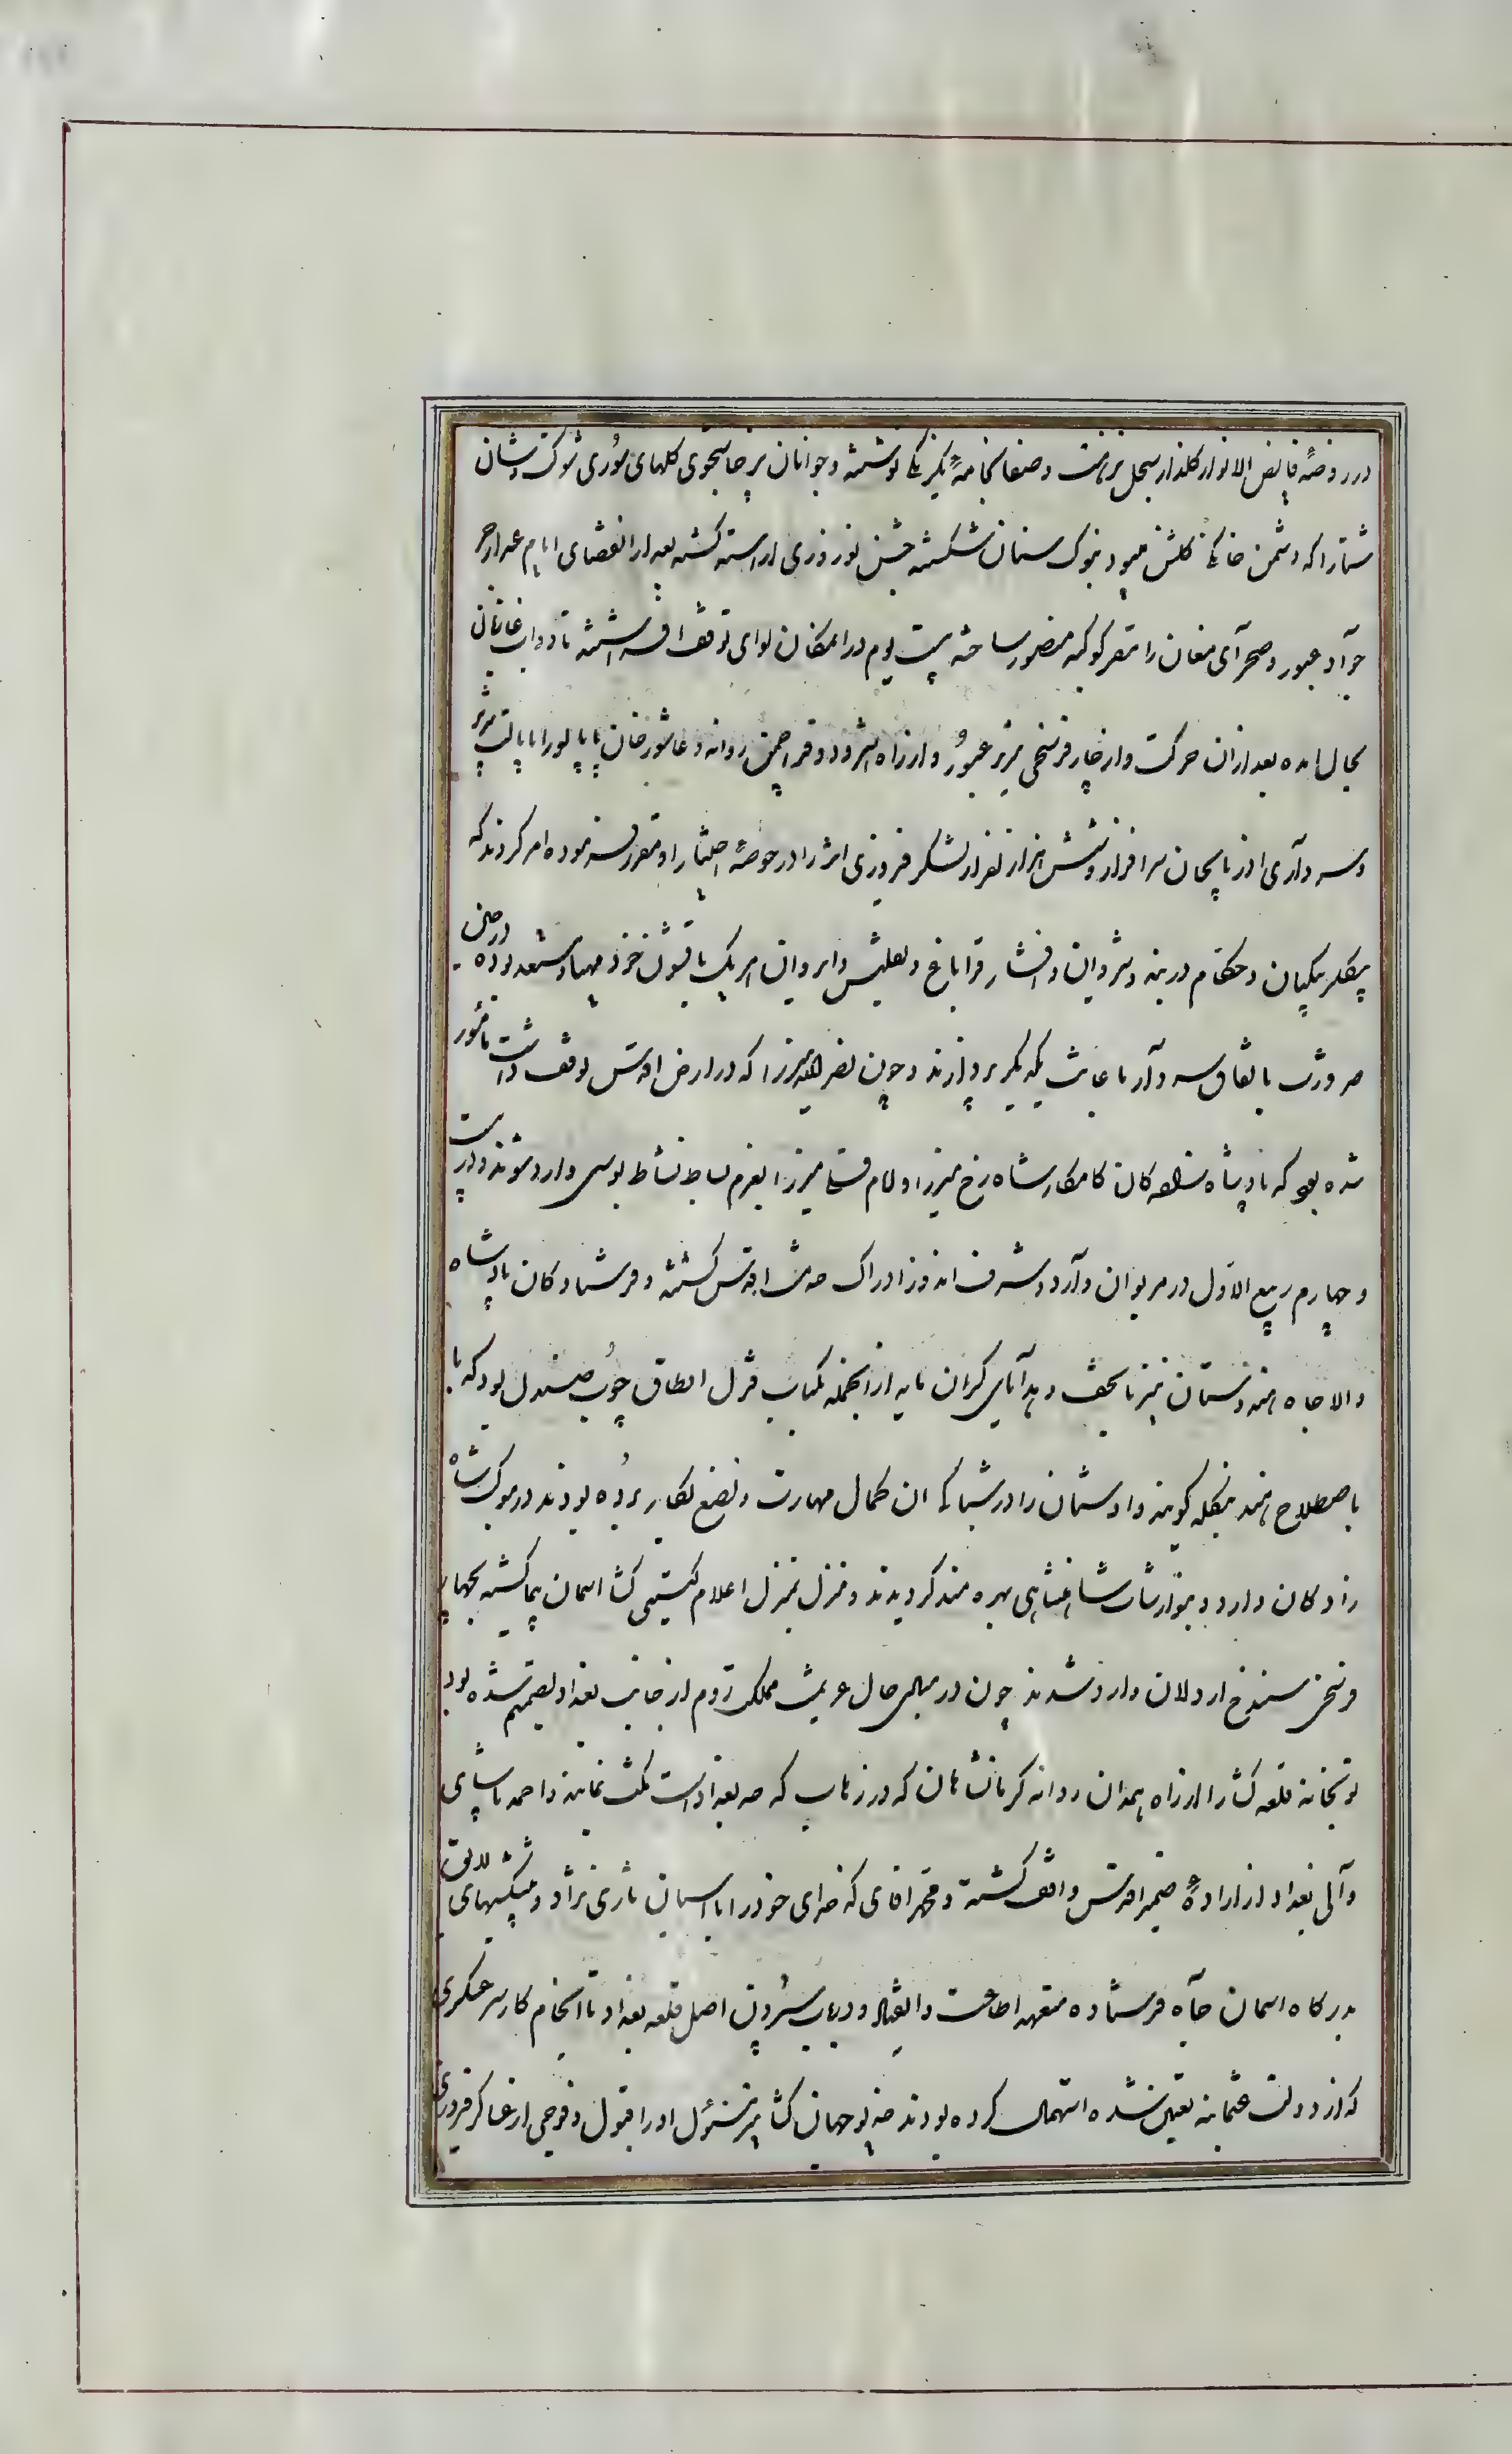 در روضهٔ فایض الانوار کلذار سجل نزهت و صنعا سخامهٔ یکرنکی نوشته و جوانان پرخاشجوی کلهای سوری شوکت و شان
شتا را که دشمن خانکی کلشن میبود بنوک سنان شکسته جشن نوروزی اراسته کشته بعد از انقضای ایام عید از جسر
جواد عبور و صحرای مغان را مقر کوکبه منصور ساخته بیست یوم در انمکان لوای توقف افراشته تا دواب غازیان
بحال امده بعد از ان حرکت و از چار فرسخی تبریز عبور و از راه اشرود و قراچمن روانه و عاشور خان پاپالو را بایالت تبریز
و سرداری اذربایجان سرافراز و شش هزار نفر از لشکر فیروزی اثر را در حوضهٔ اختیار او مقرر فرموده امر کردند که
بیکلربیکیان و حکام دربند و شروان و افشار قراباغ و تفلیس و ایروان هریک با قشون خود مهیا و مستعد بوده در حین
ضرورت باتفاق سردار باعانت یکدیکر پردازند و چون نصرالله میرزا که در ارض اقدس توقف داشت مامور
شده بود که با پادشاه زادکان کامکار شاهرخ میرزا و امام قلی میرزا بعزم بساط نشاط بوسی وارد شوند و در بیست
و چهارم ربیع الاول در مریوان وارد و شرف اندوز ادراک خدمت اقدس کشته و فرستادکان پادشاه
والا جاه هندوستان نیز با تحف و هدایای کران مایه از انجمله یکباب قزل اطاق چوب صندل بود که با
باصطلاح هند بنکله کویند و اوستمان را در شباکی ان کمال مهارت و تصنع بکار برده بودند در موکب شاه
زادکان وارد و بنوازشات شاهنشاهی بهره مند کردیدند و منزل بمنزل اعلام کیتی کشا اسمان پیما کشته بچهار
فرسخی سنندج اردلان وارد شدند چون در مبادی حال عزیمت مملکت روم از جانب بغداد تصمیم شده بود
توپخانه قلعه کشا را از راه همدان روانه کرمانشاهان که در زهاب که سرحد بغداد است مکث نمایند و احمد پاشای
والی بغداد از ارادهٔ ضمیر اقدس واقف کشته و محمد اقای کدخدای خود را با اسبان تازی نژاد و پیشکشهای لایق
بدرکاه اسمان جاه فرستاده متعهد اطاعت و انقیاد و در باب سپردن اصل قلعه بغداد تا انجام کار سرعسکری
که از دولت عثمانیه تعیین شده استمهال کرده بودند خدیو جهان کشا نیز مسئول او را قبول و فوجی از عساکر فیروزی